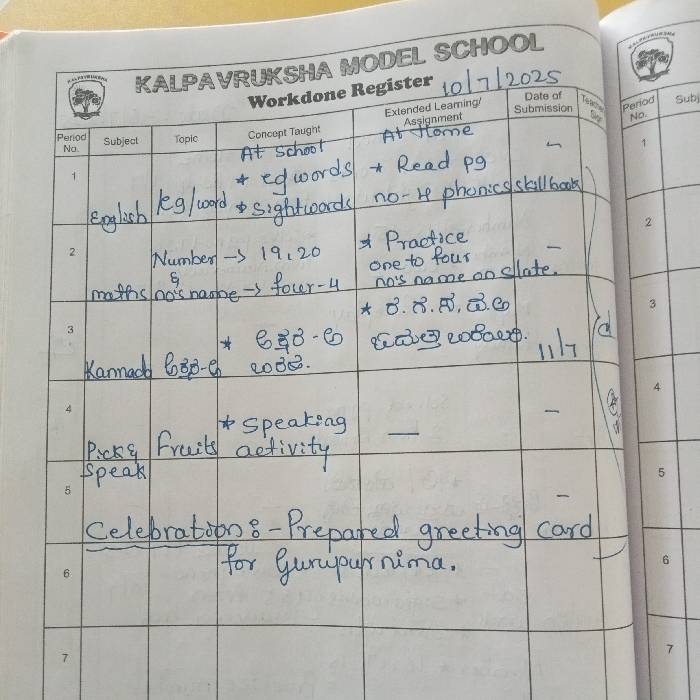 KALPAVRUKSHA
KALPAVRUKSHA MODEL SCHOOL
Workdone Register 10/7/2025
Period No. Subject Topic Concept Taught Extended Learning/ Assignment Date of Submission
At School At Home
1 English eg/word * eg words * Read pg
* Sightwords no-4 phonics skill book
2 maths Number -> 19,20 * Practice
& one to four
no's name -> four-4 no's name on slate.
3 Kannada ಅಕ್ಷರ-ಅ * ಅಕ್ಷರ-ಅ * ರ.ಗ.ಸ,
11/7
4 Pick & Speak Fruits * Speaking activity —
5 Celebration :- Prepared greeting card
6 for Gurupurnima.
7
Period No.
1
2
3
4
5
6
7